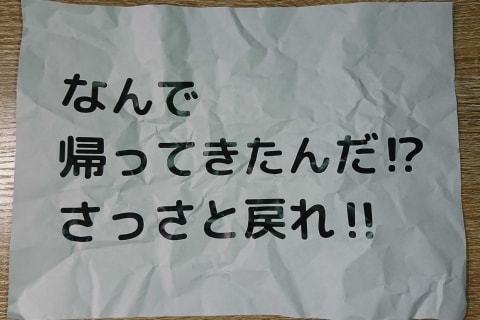 なんで
帰ってきたんだ!?
さっさと戻れ!!